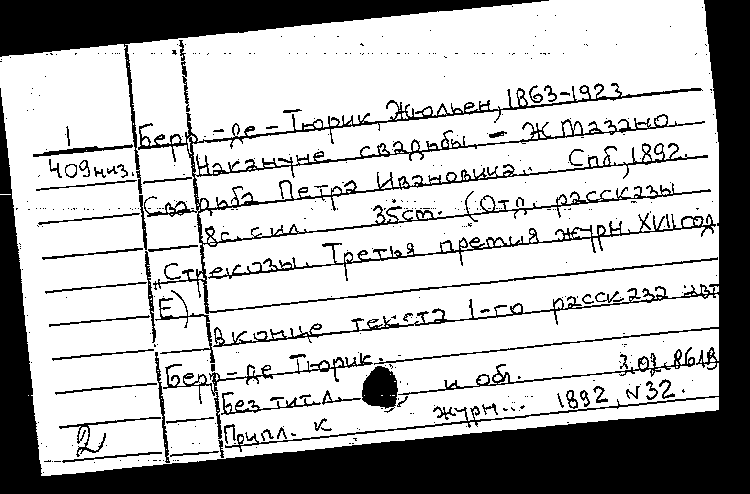 1
409 низ.
Берр.-де-Тюрик, Жюльен, 1863-1923.
Накануне свадьбы. - Ж. Мазано.
Свадьба Петра Ивановича. Спб., 1892.
8с. с ил. 35см. (Отд. рассказы
„Стрекозы". Третья премия журн. XVII год
Е).
В конце текста 1-го рассказа авт
Берр-де Тюрик.
Без тит. л. и обл. 3.03.86
Прил. к журн... 1892, N32.
2